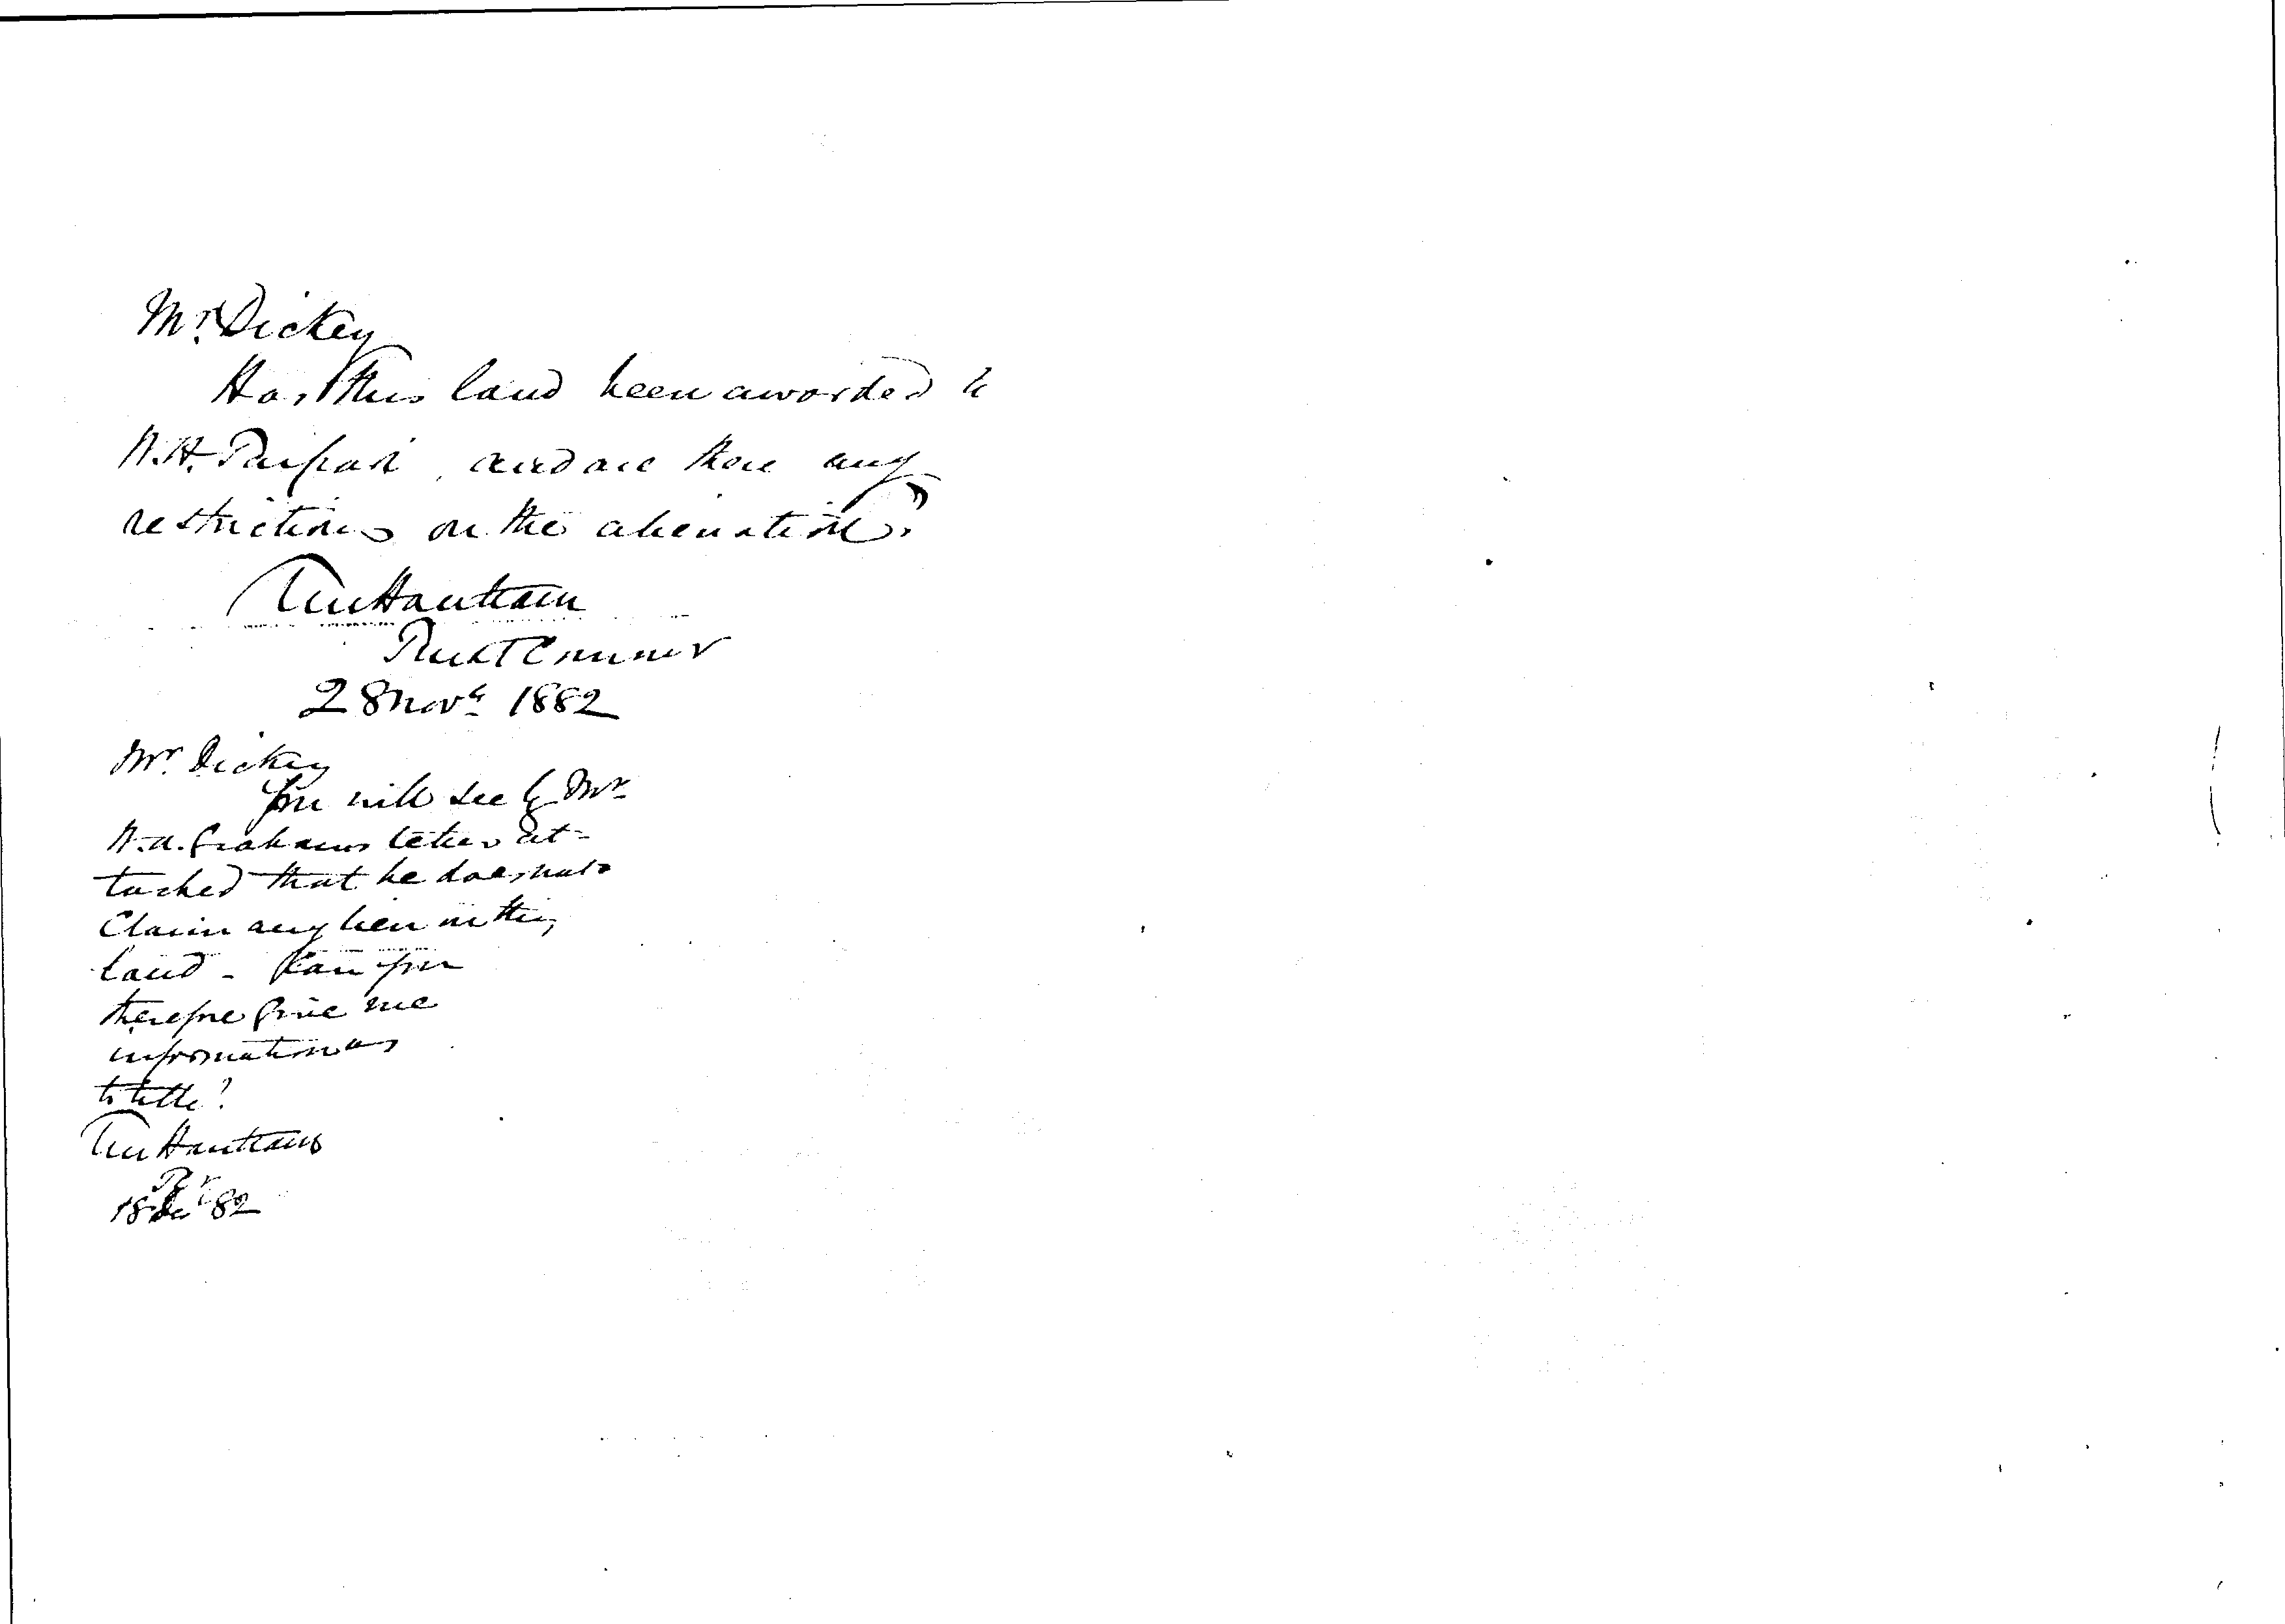 Mr. Dickey
Has this land been awarded to
W.H. and are there any
restrictions on the alienation?
28 Novr 1882
Mr. Dickey
You will see by Mr
W.A. Grahams letter at-
tached that he does not
Claim any lien on this
land - Can you
therefore give me
information as
to title?
18 Dec 82